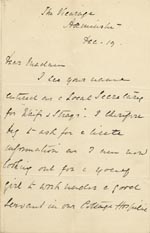 The Vicarage
Axminster
Dec. 19.
Dear Madam
I see your name
entered as a Local Secretary
for Waifs & Strays. I therefore
beg to ask for a little
information as I am now
looking out for a young
girl to work under a good
Servant in our Cottage Hospital